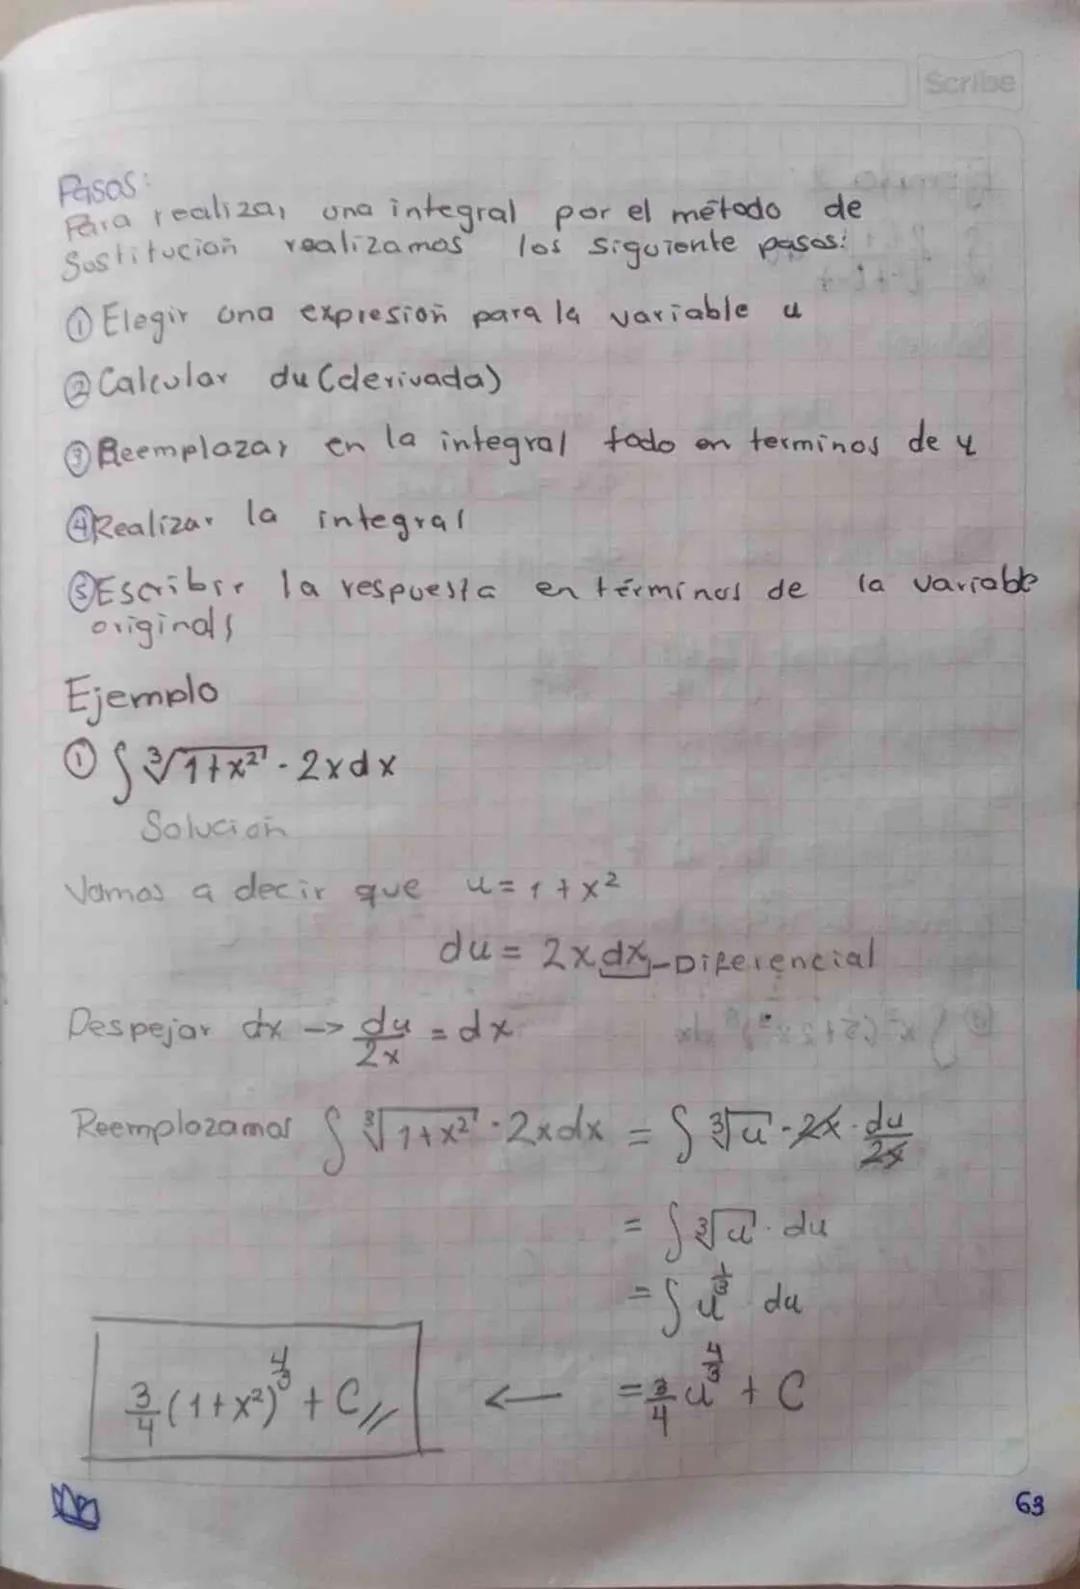 Scribe
Pasos:
Para realizar una integral por el método de
Sustitución realizamos los siguiente pasos:
① Elegir una expresión para la variable u
② Calcular du (derivada)
③ Reemplazar en la integral todo en terminos de u
④ Realizar la integral
⑤ Escribir la respuesta en términos de la variable
originals
Ejemplo
① ∫ ∛(1+x²) · 2x dx
Solución
Vamos a decir que u = 1 + x²
du = 2x dx - Diferencial
Despejar dx -> du/2x = dx
Reemplazamos ∫ ∛(1+x²) · 2x dx = ∫ ∛u · 2x · du/2x
= ∫ ∛u · du
= ∫ u^(1/3) du
3/4 (1+x²)^(4/3) + C // ← = 3/4 u^(4/3) + C
63